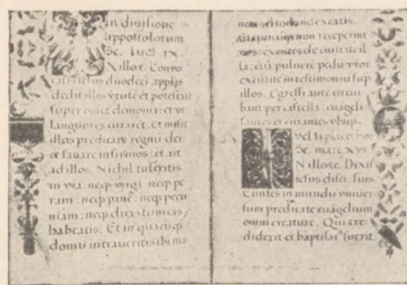 In diuisione
appostolorum
Sc. Luca. ix
N illo t. Conuo
catis iesus duodeci applis
dedit illis v̄tute et potestate
super omnia demonia: et vt
languores curaret. Et misit
illos predicare regnu dei
et sanare infirmos: et ait
ad illos. Nichil tuleritis
in via: neq virga: neq pe
ram: neq pane: neq pecu
niam: neq duas tunicas
habeatis. Et in quacuq
domu intraueritis ibi ma
nete et inde ne exeatis.
Et quicunq non receperint
vos: exeuntes de ciuitate il
la: etia puluere pedu vror
excutite in testimoniu sup
illos. Egressi aute circui
bant per castella: euageli
zantes et curantes vbiq.
Vel si placet hoc
Sc. marc. xvi
N illo tc. Dixit
iesus discis. suis.
Euntes in mundu vniuer
sum predicate euagelium
omni creature. Qui cre
diderit et baptisat' fuerit